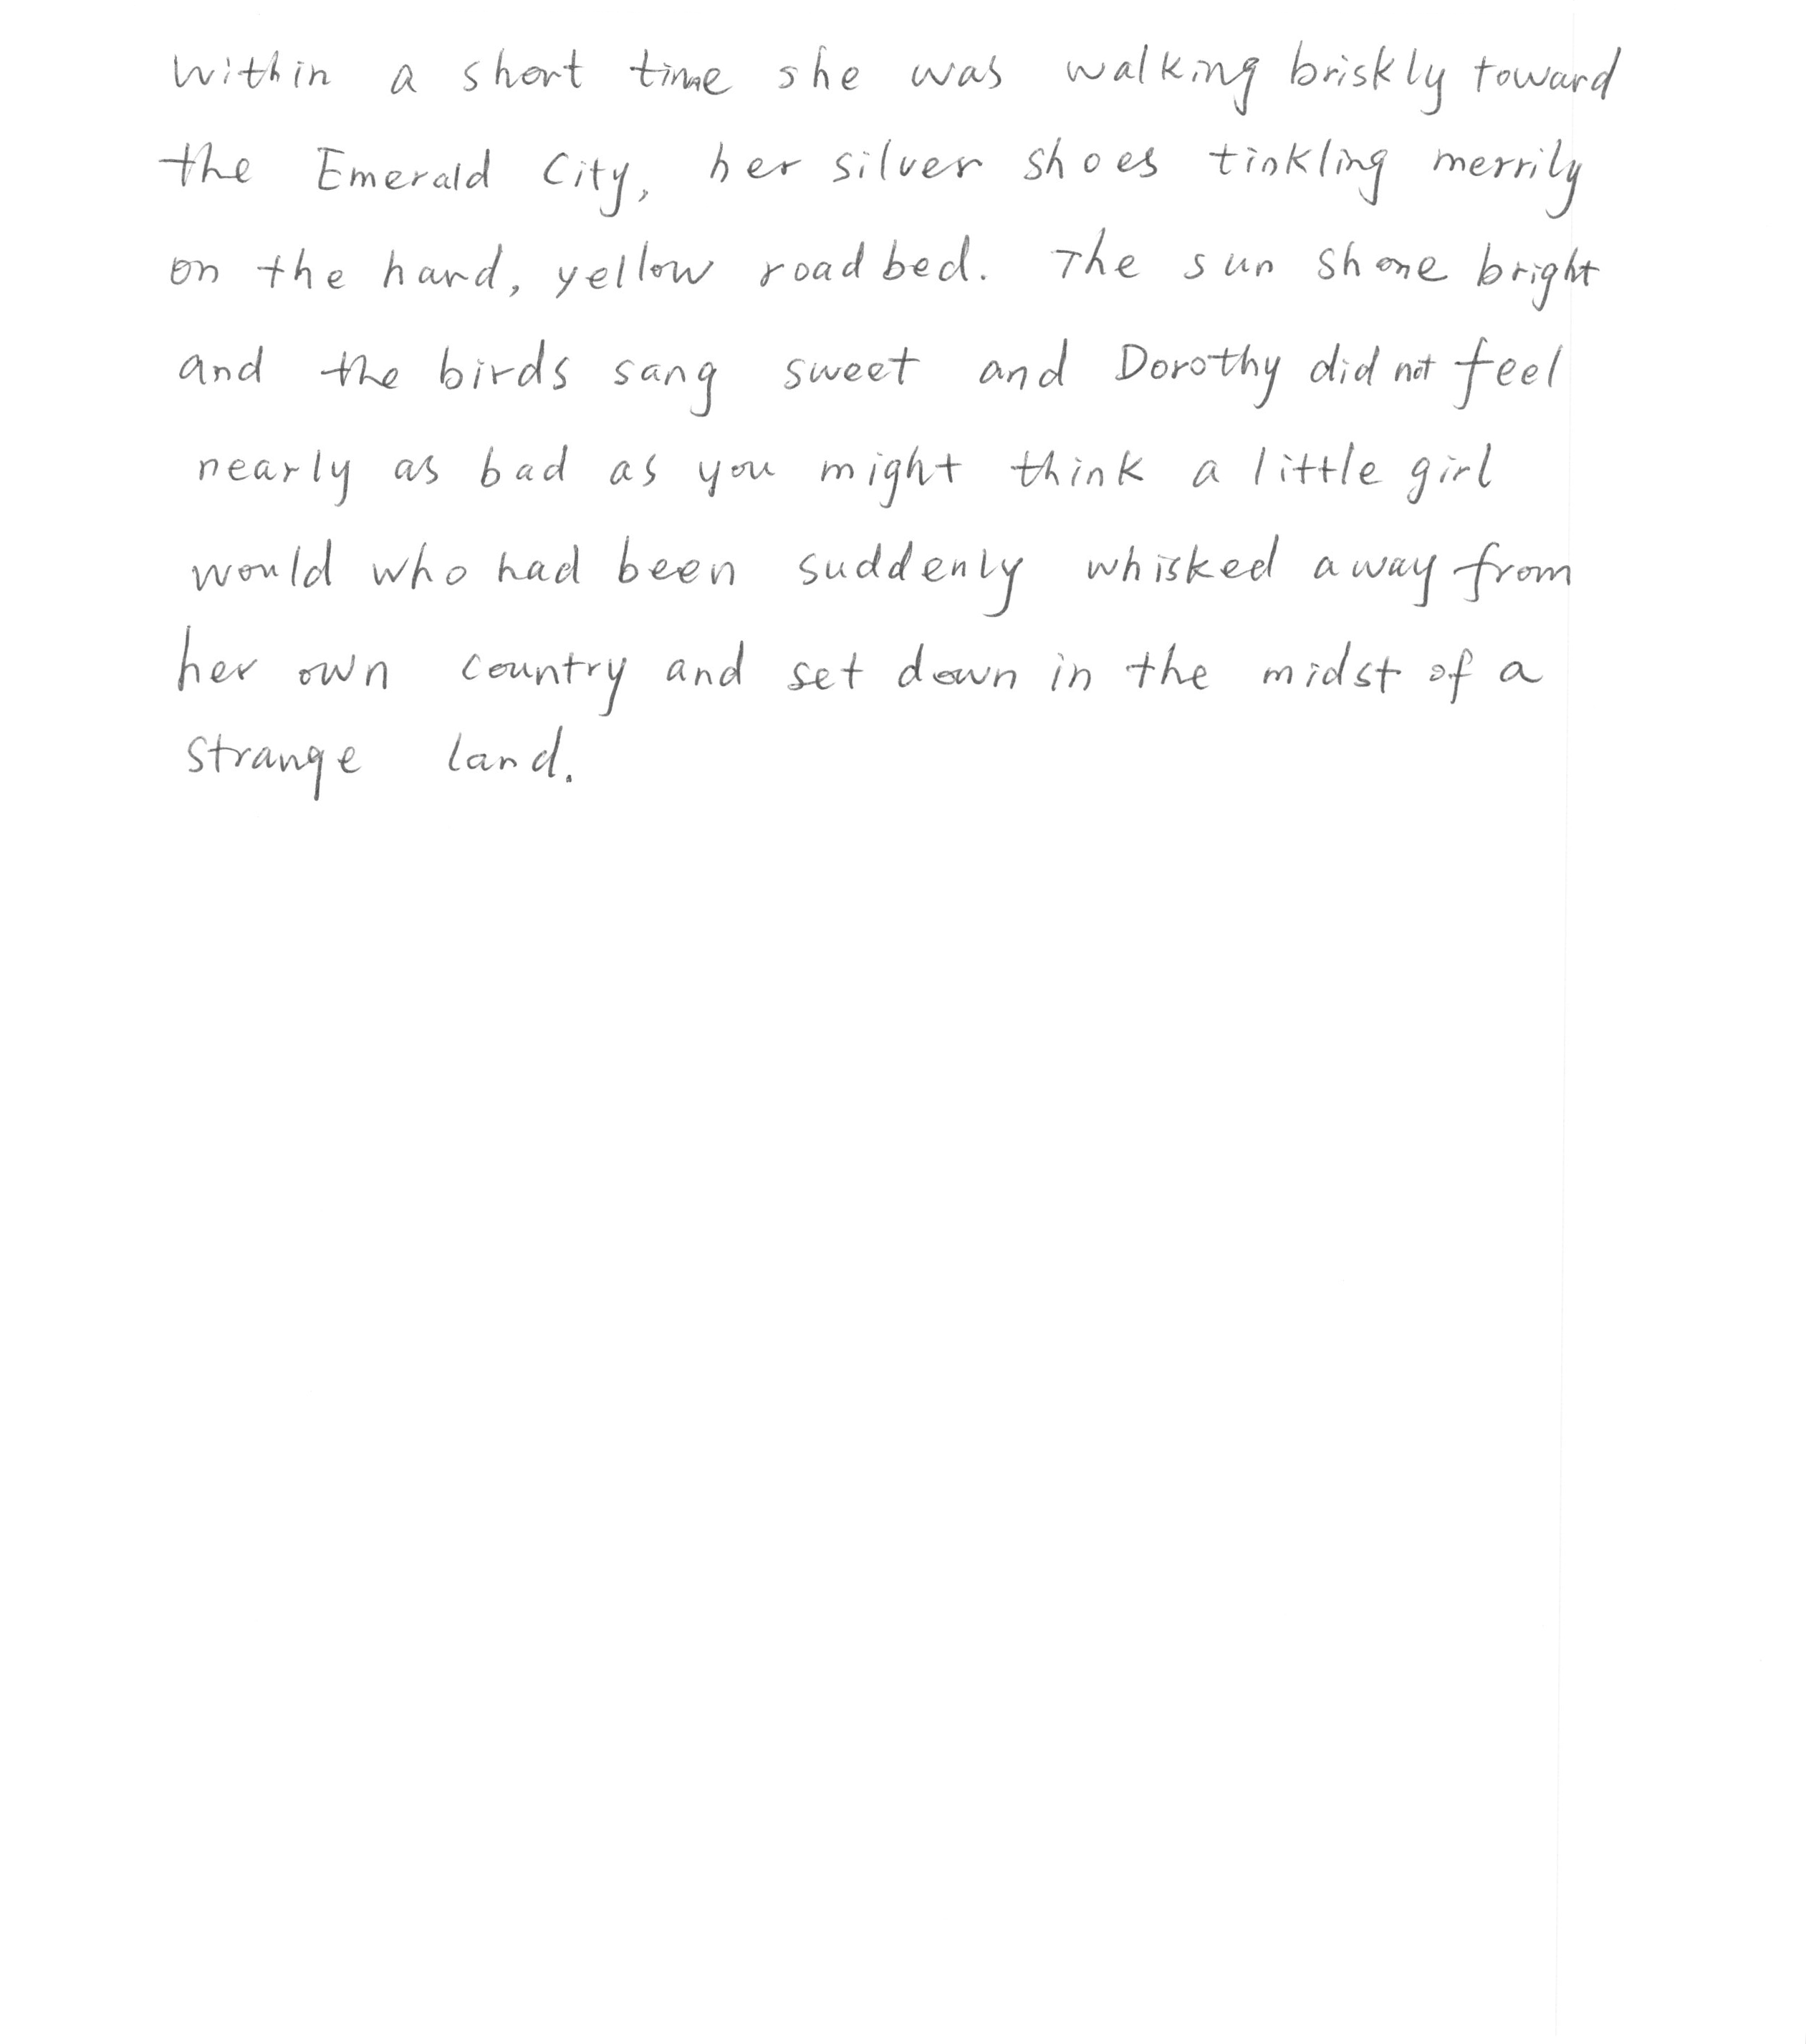 Within a short time she was walking briskly toward
the Emerald City, her silver shoes tinkling merrily
on the hard, yellow road bed. The sun shone bright
and the birds sang sweet and Dorothy did not feel
nearly as bad as you might think a little girl
would who had been suddenly whisked away from
her own country and set down in the midst of a
strange land.